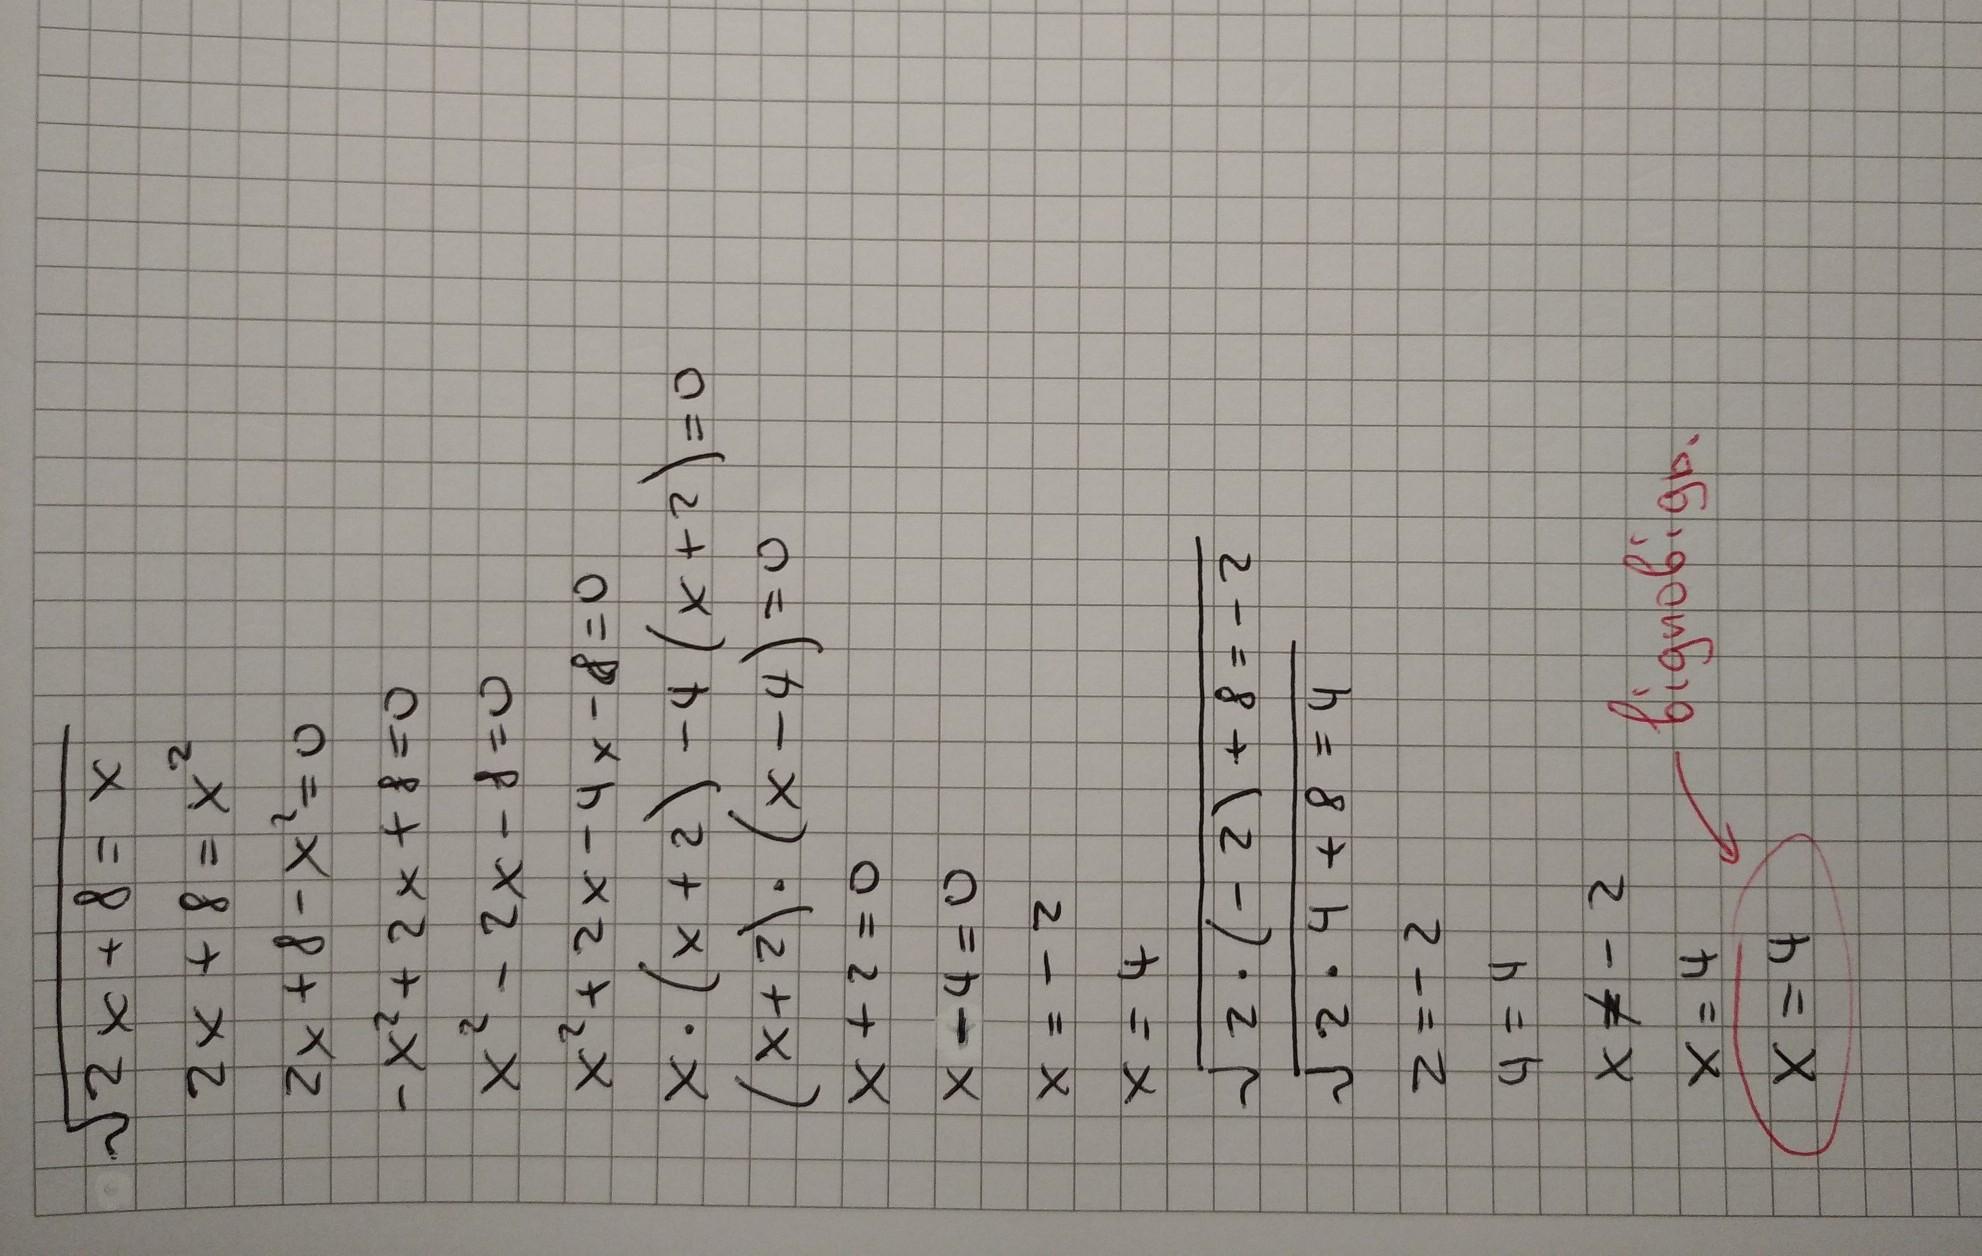 √2x+8=x
2x+8=x²
2x+8-x²=0
-x²+2x+8=0
x²-2x-8=0
x²+2x-4x-8=0
x·(x+2)-4(x+2)=0
(x+2)·(x-4)=0
x+2=0
x-4=0
x=-2
x=4
√2·(-2)+8=-2
√2·4+8=4
2=-2
4=4
x≠-2
x=4
x=4
відповідь.